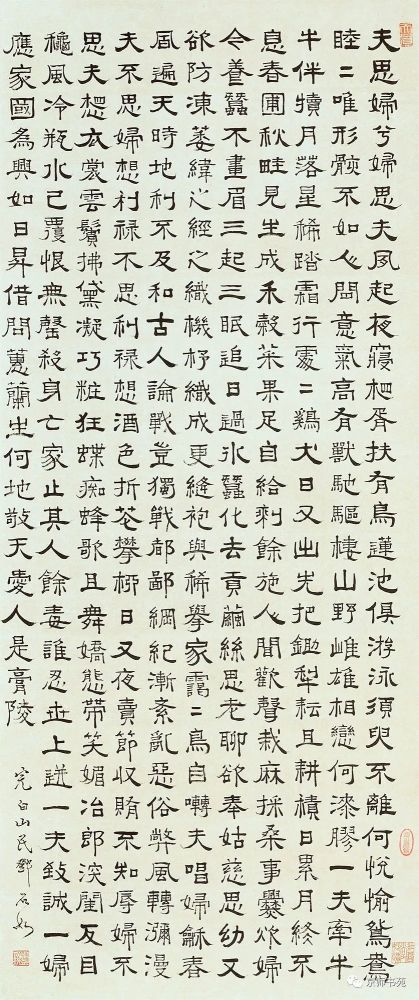 夫思婦兮婦思夫夙起夜寢相胥扶有鳥蓮池俱游泳須臾不離何悅愉鴛鴦
睦二唯形骸不如人間意氣高有獸馳驅棲山野雌雄相戀何漆膠一夫牽牛
牛伴犢月落星稀踏霜行處二鷄犬日又出先把鋤犂耘且耕積日累月終不
息春圃秋畦見生成禾穀菜果足自給剩餘施人聞歡聲栽麻採桑事爨炊婦
令養蠶不畫眉三起三眠追日過氷蠶化去貢繭絲思老聊欲奉姑慈思幼又
欲防凍萎緯之經之織機杼織成更縫袍與稀擧家靄二鳥自囀夫唱婦龢春
風遍天時地利不及和古人論戰豈獨戰都鄙綱紀漸紊亂惡俗弊風轉瀰漫
夫不思婦想利祿不思利祿想酒色折花攀柳日又夜賣節収賄不知辱婦不
思夫想衣裳雲鬢拂黛凝巧粧狂蝶痴蜂歌且舞嬌態帶笑媚冶郎深閨反目
穐風冷瓶水已覆恨無聲殺身亡家止其人餘毒誰忍世上迸一夫致誠一婦
應家國為興如日昇借問蕙蘭生何地敬天愛人是膏陵
完白山民鄧石如
京师书苑